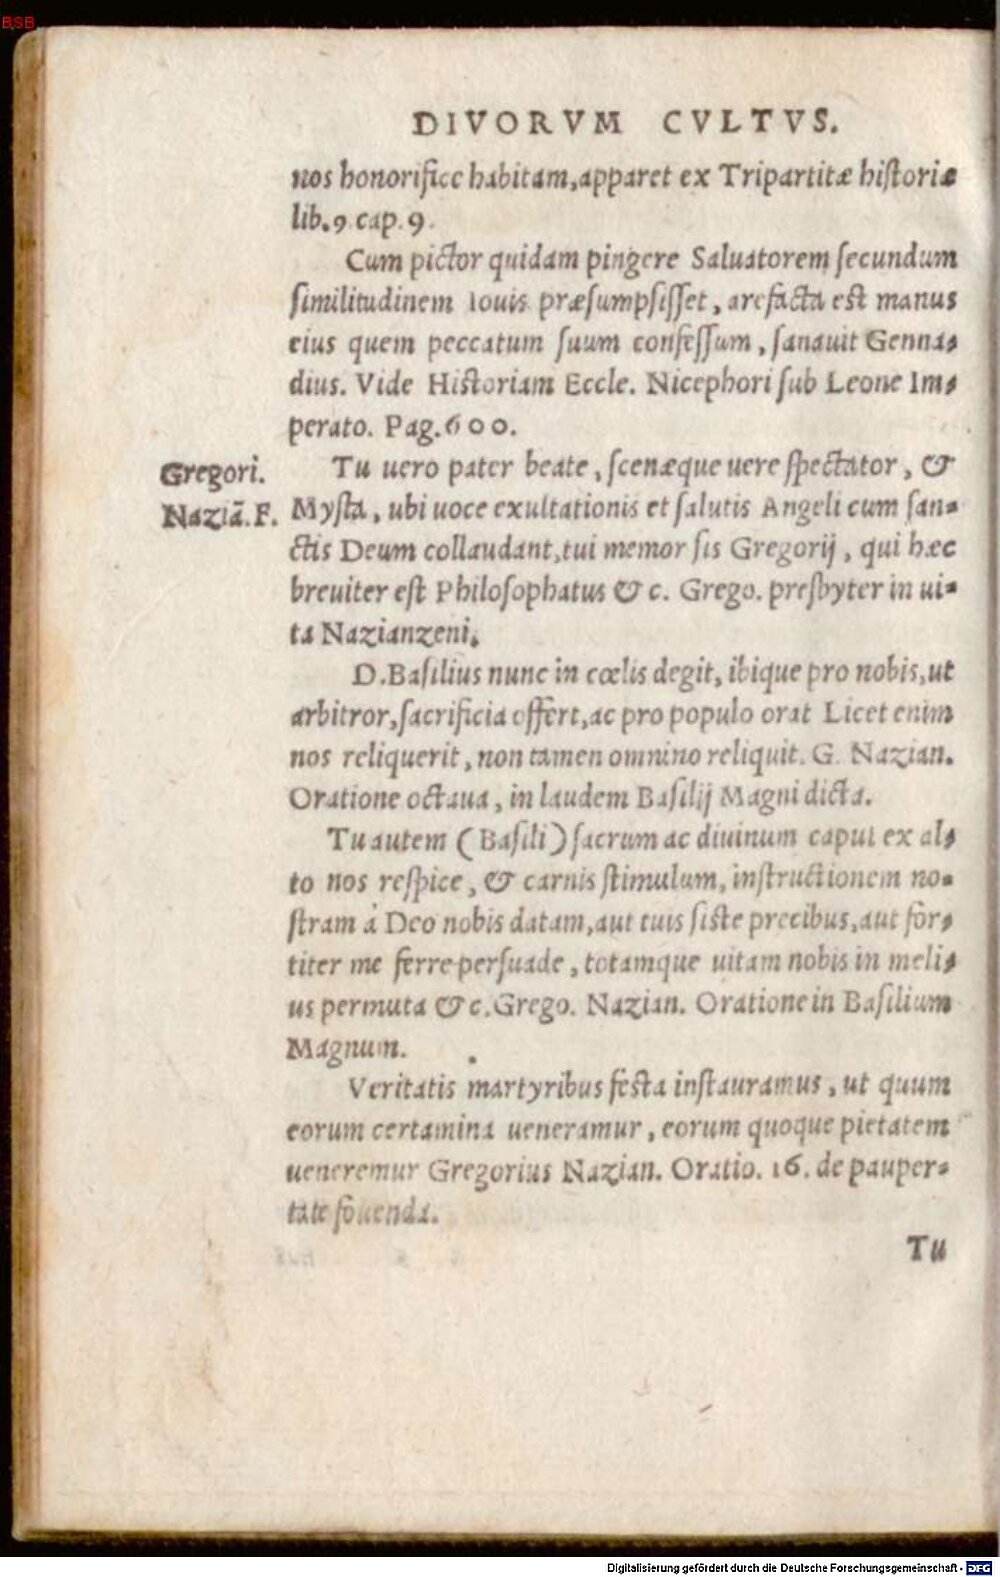 BSB
DIVORVM CVLTVS.
nos honorifice habitam, apparet ex Tripartitæ historiæ
lib.9 cap.9.
Cum pictor quidam pingere Saluatorem secundum
similitudinem Iouis præsumpsisset, arefacta est manus
eius quem peccatum suum confessum, sanauit Genna-
dius. Vide Historiam Eccle. Nicephori sub Leone Im-
perato. Pag.600.
Gregori.
Naziã. F.
Tu uero pater beate, scenæque uere spectator, &
Mysta, ubi uoce exultationis et salutis Angeli cum san-
ctis Deum collaudant, tui memor sis Gregorij, qui hæc
breuiter est Philosophatus & c. Grego. presbyter in ui-
ta Nazianzeni.
D. Basilius nunc in cœlis degit, ibique pro nobis, ut
arbitror, sacrificia offert, ac pro populo orat Licet enim
nos reliquerit, non tamen omnino reliquit. G. Nazian.
Oratione octaua, in laudem Basilij Magni dicta.
Tu autem (Basili) sacrum ac diuinum caput ex al-
to nos respice, & carnis stimulum, instructionem no-
stram à Deo nobis datam, aut tuis siste precibus, aut for-
titer me ferre persuade, totamque uitam nobis in meli-
us permuta & c. Grego. Nazian. Oratione in Basilium
Magnum.
Veritatis martyribus festa instauramus, ut quum
eorum certamina ueneramur, eorum quoque pietatem
ueneremur Gregorius Nazian. Oratio. 16. de pauper-
tate fouenda.
Tu
Digitalisierung gefördert durch die Deutsche Forschungsgemeinschaft - DFG